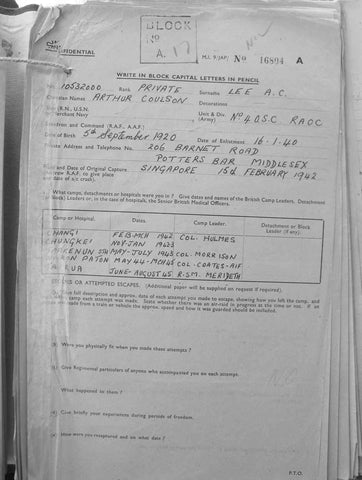 BLOCK
No
A. 17
CONFIDENTIAL
M.I. 9/JAP/ No 16894 A
WRITE IN BLOCK CAPITAL LETTERS IN PENCIL
No. 10532000 Rank PRIVATE Surname LEE A.C.
Christian Names ARTHUR COULSON Decorations
(R.N., U.S.N. Merchant Navy Unit & Div. (Army) No 4 O.S.C RAOC
Squadron and Command (R.A.F., A.A.F.)
Date of Birth 5th September 1920 Date of Enlistment 16-1-40
Private Address and Telephone No. 206 BARNET ROAD
POTTERS BAR MIDDLESEX
and Date of Original Capture SINGAPORE 15th FEBRUARY 1942
(R.A.F. to give place of a/c crash).
What camps, detachments or hospitals were you in? Give dates and names of the British Camp Leaders, Detachment
Block) Leaders or, in case of hospitals, the Senior British Medical Officers.
Camp or Hospital. Dates. Camp Leader. Detachment or Block Leader (if any).
CHANGI FEB-MCH 1942 COL. HOLMES
CHUNGKEI NOV-JAN
MAY-JULY 1943 COL. MORRISON
PATON MAY 44 COL-COATES-AIF
JUNE-AUGUST 45 R.S.M.
OR ATTEMPTED ESCAPES. (Additional paper will be supplied on request if required).
full description and approx. date of each attempt you made to escape, showing how you left the camp, and
camp each attempt was made. State whether there was an air-raid in progress at the time or not. If an
made from a train or vehicle the approx. speed and how it was guarded should be included.
Were you physically fit when you made these attempts?
Give Regimental particulars of anyone who accompanied you on each attempt.
What happened to them?
Give briefly your experiences during periods of freedom.
How were you recaptured and on what date?
P.T.O.